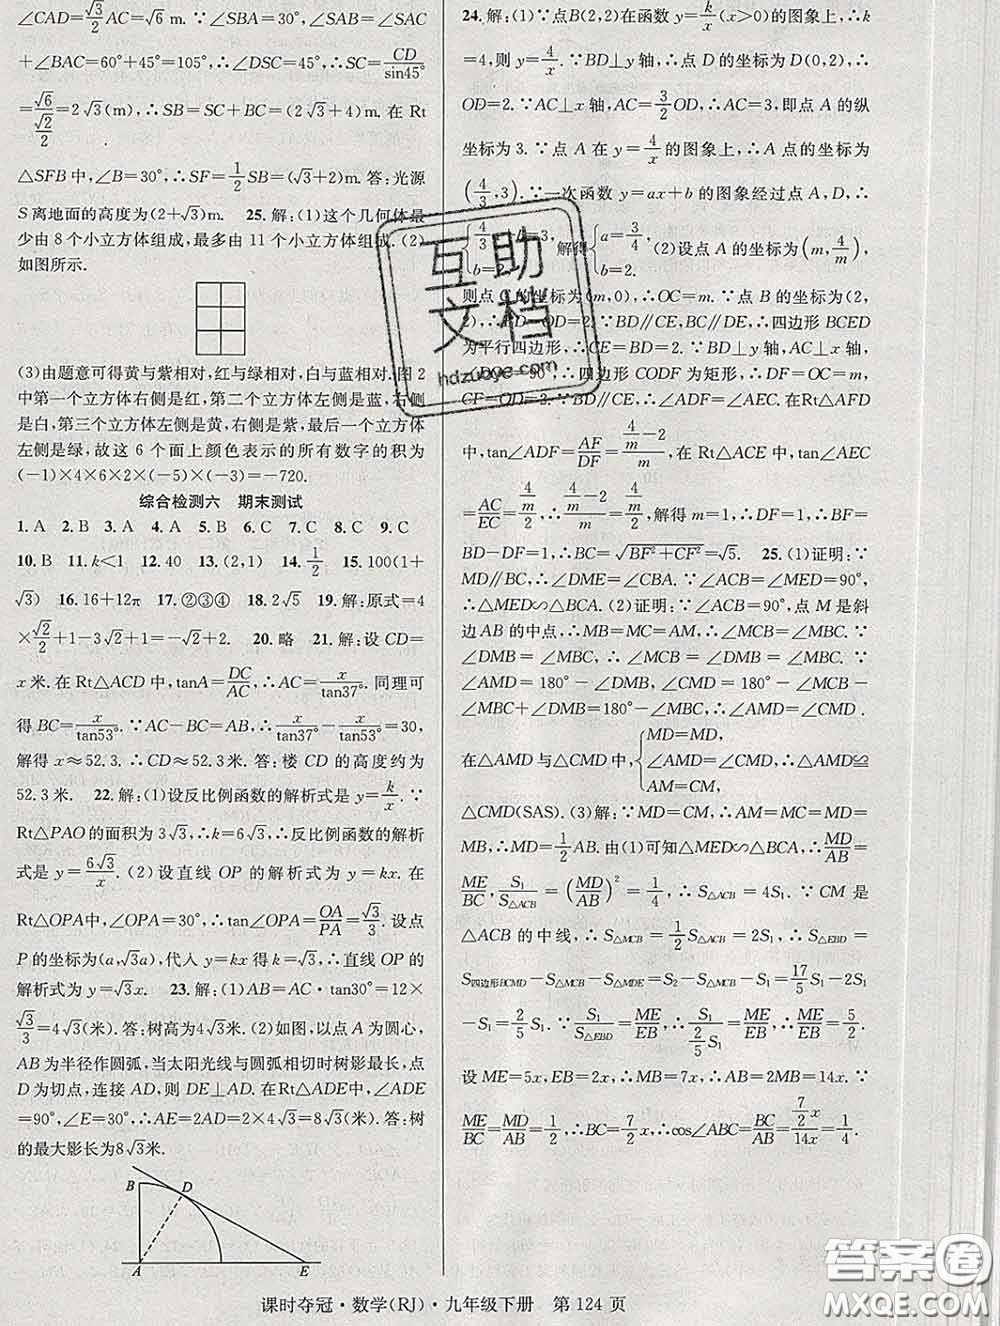 ∠CAD=√3/2 AC=√6 m. ∵∠SBA=30°,∠SAB=∠SAC
+∠BAC=60°+45°=105°,∴∠DSC=45°,∴SC=CD/sin45°
=√6/(√2/2)=2√3(m),∴SB=SC+BC=(2√3+4)m. 在 Rt
△SFB 中,∠B=30°,∴SF=1/2 SB=(2+√3)m. 答:光源
S 离地面的高度为(2+√3)m. 25. 解:(1)这个几何体最
少由 8 个小立方体组成,最多由 11 个小立方体组成. (2)
如图所示.
(3)由题意可得黄与紫相对,红与绿相对,白与蓝相对. 图 2
中第一个立方体右侧是红,第二个立方体左侧是蓝,右侧
是白,第三个立方体左侧是黄,右侧是紫,最后一个立方体
左侧是绿,故这 6 个面上颜色表示的所有数字的积为
(-1)×4×6×2×(-5)×(-3)=-720.
综合检测六 期末测试
1. A 2. B 3. A 4. A 5. B 6. C 7. C 8. C 9. C
10. B 11. k<1 12. 40 13. (2,1) 14. 1/2 15. 100(1+
√3) 16. 16+12π 17. ②③④ 18. 2√5 19. 解:原式=4
×√2/2+1-3√2+1=-√2+2. 20. 略 21. 解:设 CD=
x 米. 在 Rt△ACD 中,tanA=DC/AC,∴AC=x/tan37°. 同理可
得 BC=x/tan53°. ∵AC-BC=AB,∴x/tan37°-x/tan53°=30,
解得 x≈52.3. ∴CD≈52.3 米. 答:楼 CD 的高度约为
52.3 米. 22. 解:(1)设反比例函数的解析式是 y=k/x. ∵
Rt△PAO 的面积为 3√3,∴k=6√3,∴反比例函数的解析
式是 y=6√3/x. (2)设直线 OP 的解析式为 y=kx. 在
Rt△OPA 中,∠OPA=30°,∴tan∠OPA=OA/PA=√3/3. 设点
P 的坐标为(a,√3a),代入 y=kx 得 k=√3,∴直线 OP 的
解析式为 y=√3x. 23. 解:(1)AB=AC·tan30°=12×
√3/3=4√3(米). 答:树高为 4√3 米. (2)如图,以点 A 为圆心,
AB 为半径作圆弧,当太阳光线与圆弧相切时树影最长,点
D 为切点,连接 AD,则 DE⊥AD. 在 Rt△ADE 中,∠ADE
=90°,∠E=30°,∴AE=2AD=2×4√3=8√3(米). 答:树
的最大影长为 8√3 米.
B D
A E
24. 解:(1)∵点 B(2,2)在函数 y=k/x(x>0)的图象上,∴k
=4,则 y=4/x. ∵BD⊥y 轴,∴点 D 的坐标为 D(0,2),∴
OD=2. ∵AC⊥x 轴,AC=3/2 OD,∴AC=3,即点 A 的纵
坐标为 3. ∵点 A 在 y=4/x 的图象上,∴A 点的坐标为
(4/3,3). ∵一次函数 y=ax+b 的图象经过点 A,D,∴
b=3, b=2. 解得 a=3/4, b=2. (2)设点 A 的坐标为(m,4/m),
则点 C 的坐标为(m,0),∴OC=m. ∵点 B 的坐标为(2,
2),∴BD=OD=2. ∵BD∥CE,BC∥DE,∴四边形 BCED
为平行四边形,∴CE=BD=2. ∵BD⊥y 轴,AC⊥x 轴,
=90°,∴四边形 CODF 为矩形,∴DF=OC=m,
CF=OD=2. ∵BD∥CE,∴∠ADF=∠AEC. 在 Rt△AFD
中,tan∠ADF=AF/DF=(4/m-2)/m,在 Rt△ACE 中,tan∠AEC
=AC/EC=(4/m)/2,∴(4/m-2)/m=(4/m)/2,解得 m=1,∴DF=1,∴BF=
BD-DF=1,∴BC=√(BF²+CF²)=√5. 25. (1)证明:∵
MD∥BC,∴∠DME=∠CBA. ∵∠ACB=∠MED=90°,
∴△MED∽△BCA. (2)证明:∵∠ACB=90°,点 M 是斜
边 AB 的中点,∴MB=MC=AM,∴∠MCB=∠MBC. ∵
∠DMB=∠MBC,∴∠MCB=∠DMB=∠MBC. ∵
∠AMD=180°-∠DMB,∠CMD=180°-∠MCB-
∠MBC+∠DMB=180°-∠MBC,∴∠AMD=∠CMD.
在△AMD 与△CMD 中,{MD=MD, ∠AMD=∠CMD, AM=CM, ∴△AMD≌
△CMD(SAS). (3)解:∵MD=CM,∴AM=MC=MD=
MB,∴MD=1/2 AB. 由(1)可知△MED∽△BCA,∴MD/AB=
ME/BC,S₁/S△ACB=(MD/AB)²=1/4,∴S△ACB=4S₁. ∵CM 是
△ACB 的中线,∴S△MCB=1/2 S△ACB=2S₁,∴S△EBD=
S四边形BCMD-S△MCB-S△MDE=S₂-S△MCB-S₁=17/5 S₁-2S₁
-S₁=2/5 S₁. ∵S₁/S△EBD=ME/EB,∴S₁/(2/5 S₁)=ME/EB,∴ME/EB=5/2.
设 ME=5x,EB=2x,∴MB=7x,∴AB=2MB=14x. ∵
ME/BC=MD/AB=1/2,∴BC=7/2... 

课时夺冠·数学(RJ)·九年级下册 第 124 页
互助文档
hdzuoye.com
答案圈
MXQE.COM